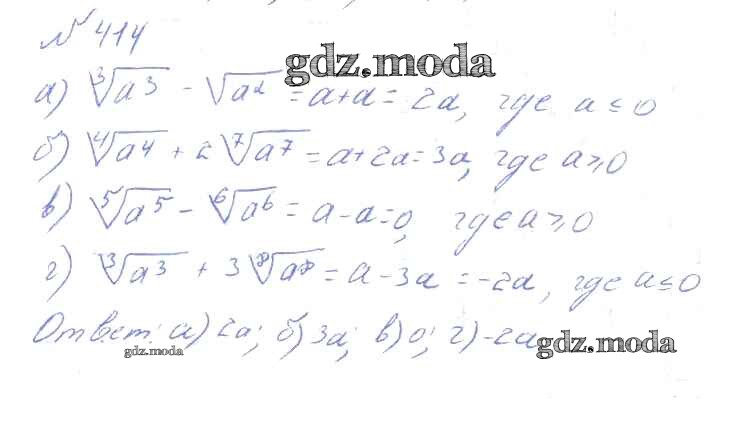 № 414
gdz.moda
а) ∛a³ - √a² = a+a = 2a, где a ≤ 0
б) ∜a⁴ + 2 ⁷√a⁷ = a+2a = 3a, где a ≥ 0
в) ⁵√a⁵ - ⁶√a⁶ = a-a=0, где a ≥ 0
г) ∛a³ + 3 ⁸√a⁸ = a - 3a = -2a, где a ≤ 0
Ответ: а) 2a; б) 3a; в) 0; г) -2a
gdz.moda
gdz.moda